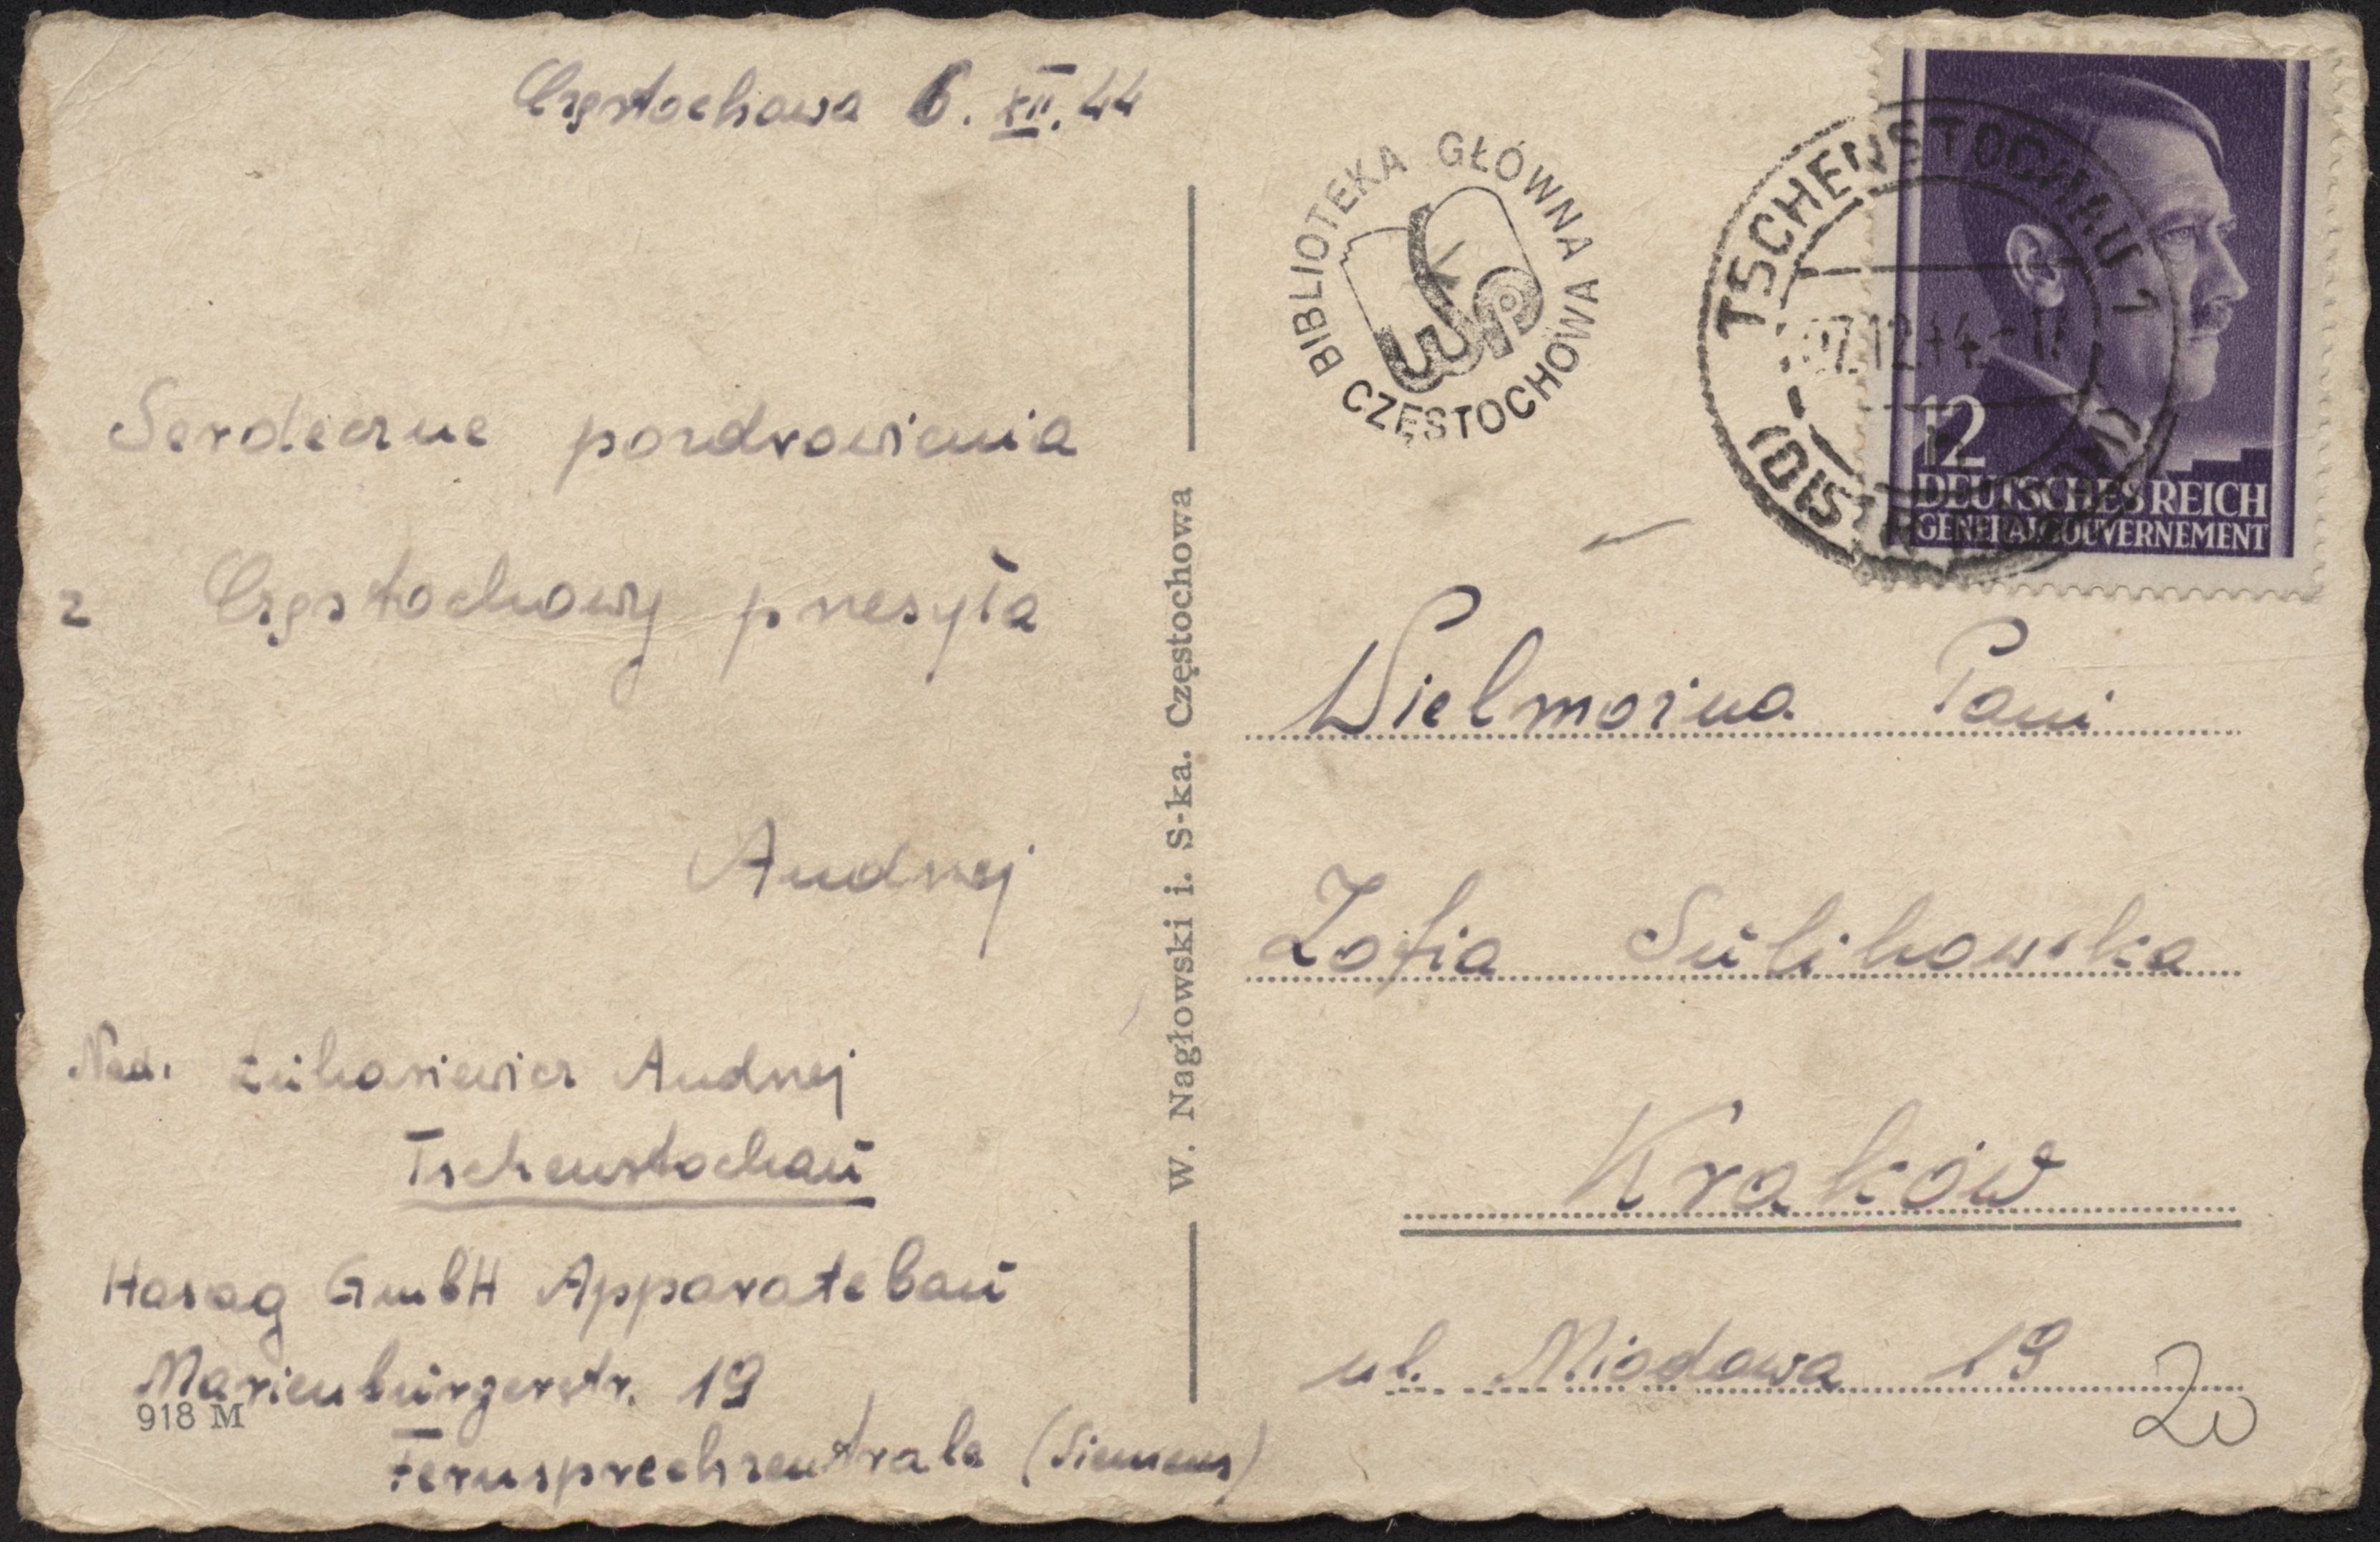 Częstochowa 6. XII. 44
Serdeczne pozdrowienia
z Częstochowy przesyła
Andrzej
Nad. Łukasiewicz Andrzej
Tschenstochau
Hasag GmbH Apparatebau
Marienburgerstr. 19
918 M
Fernsprechzentrale (Siemens)
W. Nagłowski i. S-ka. Częstochowa
BIBLIOTEKA GŁÓWNA
WSP
CZĘSTOCHOWA
TSCHENSTOCHAU 1
12.44
(DISTR.
12
DEUTSCHES REICH
GENERALGOUVERNEMENT
Wielmożna Pani
Zofia Sulikowska
Kraków
ul. Miodowa 19
20